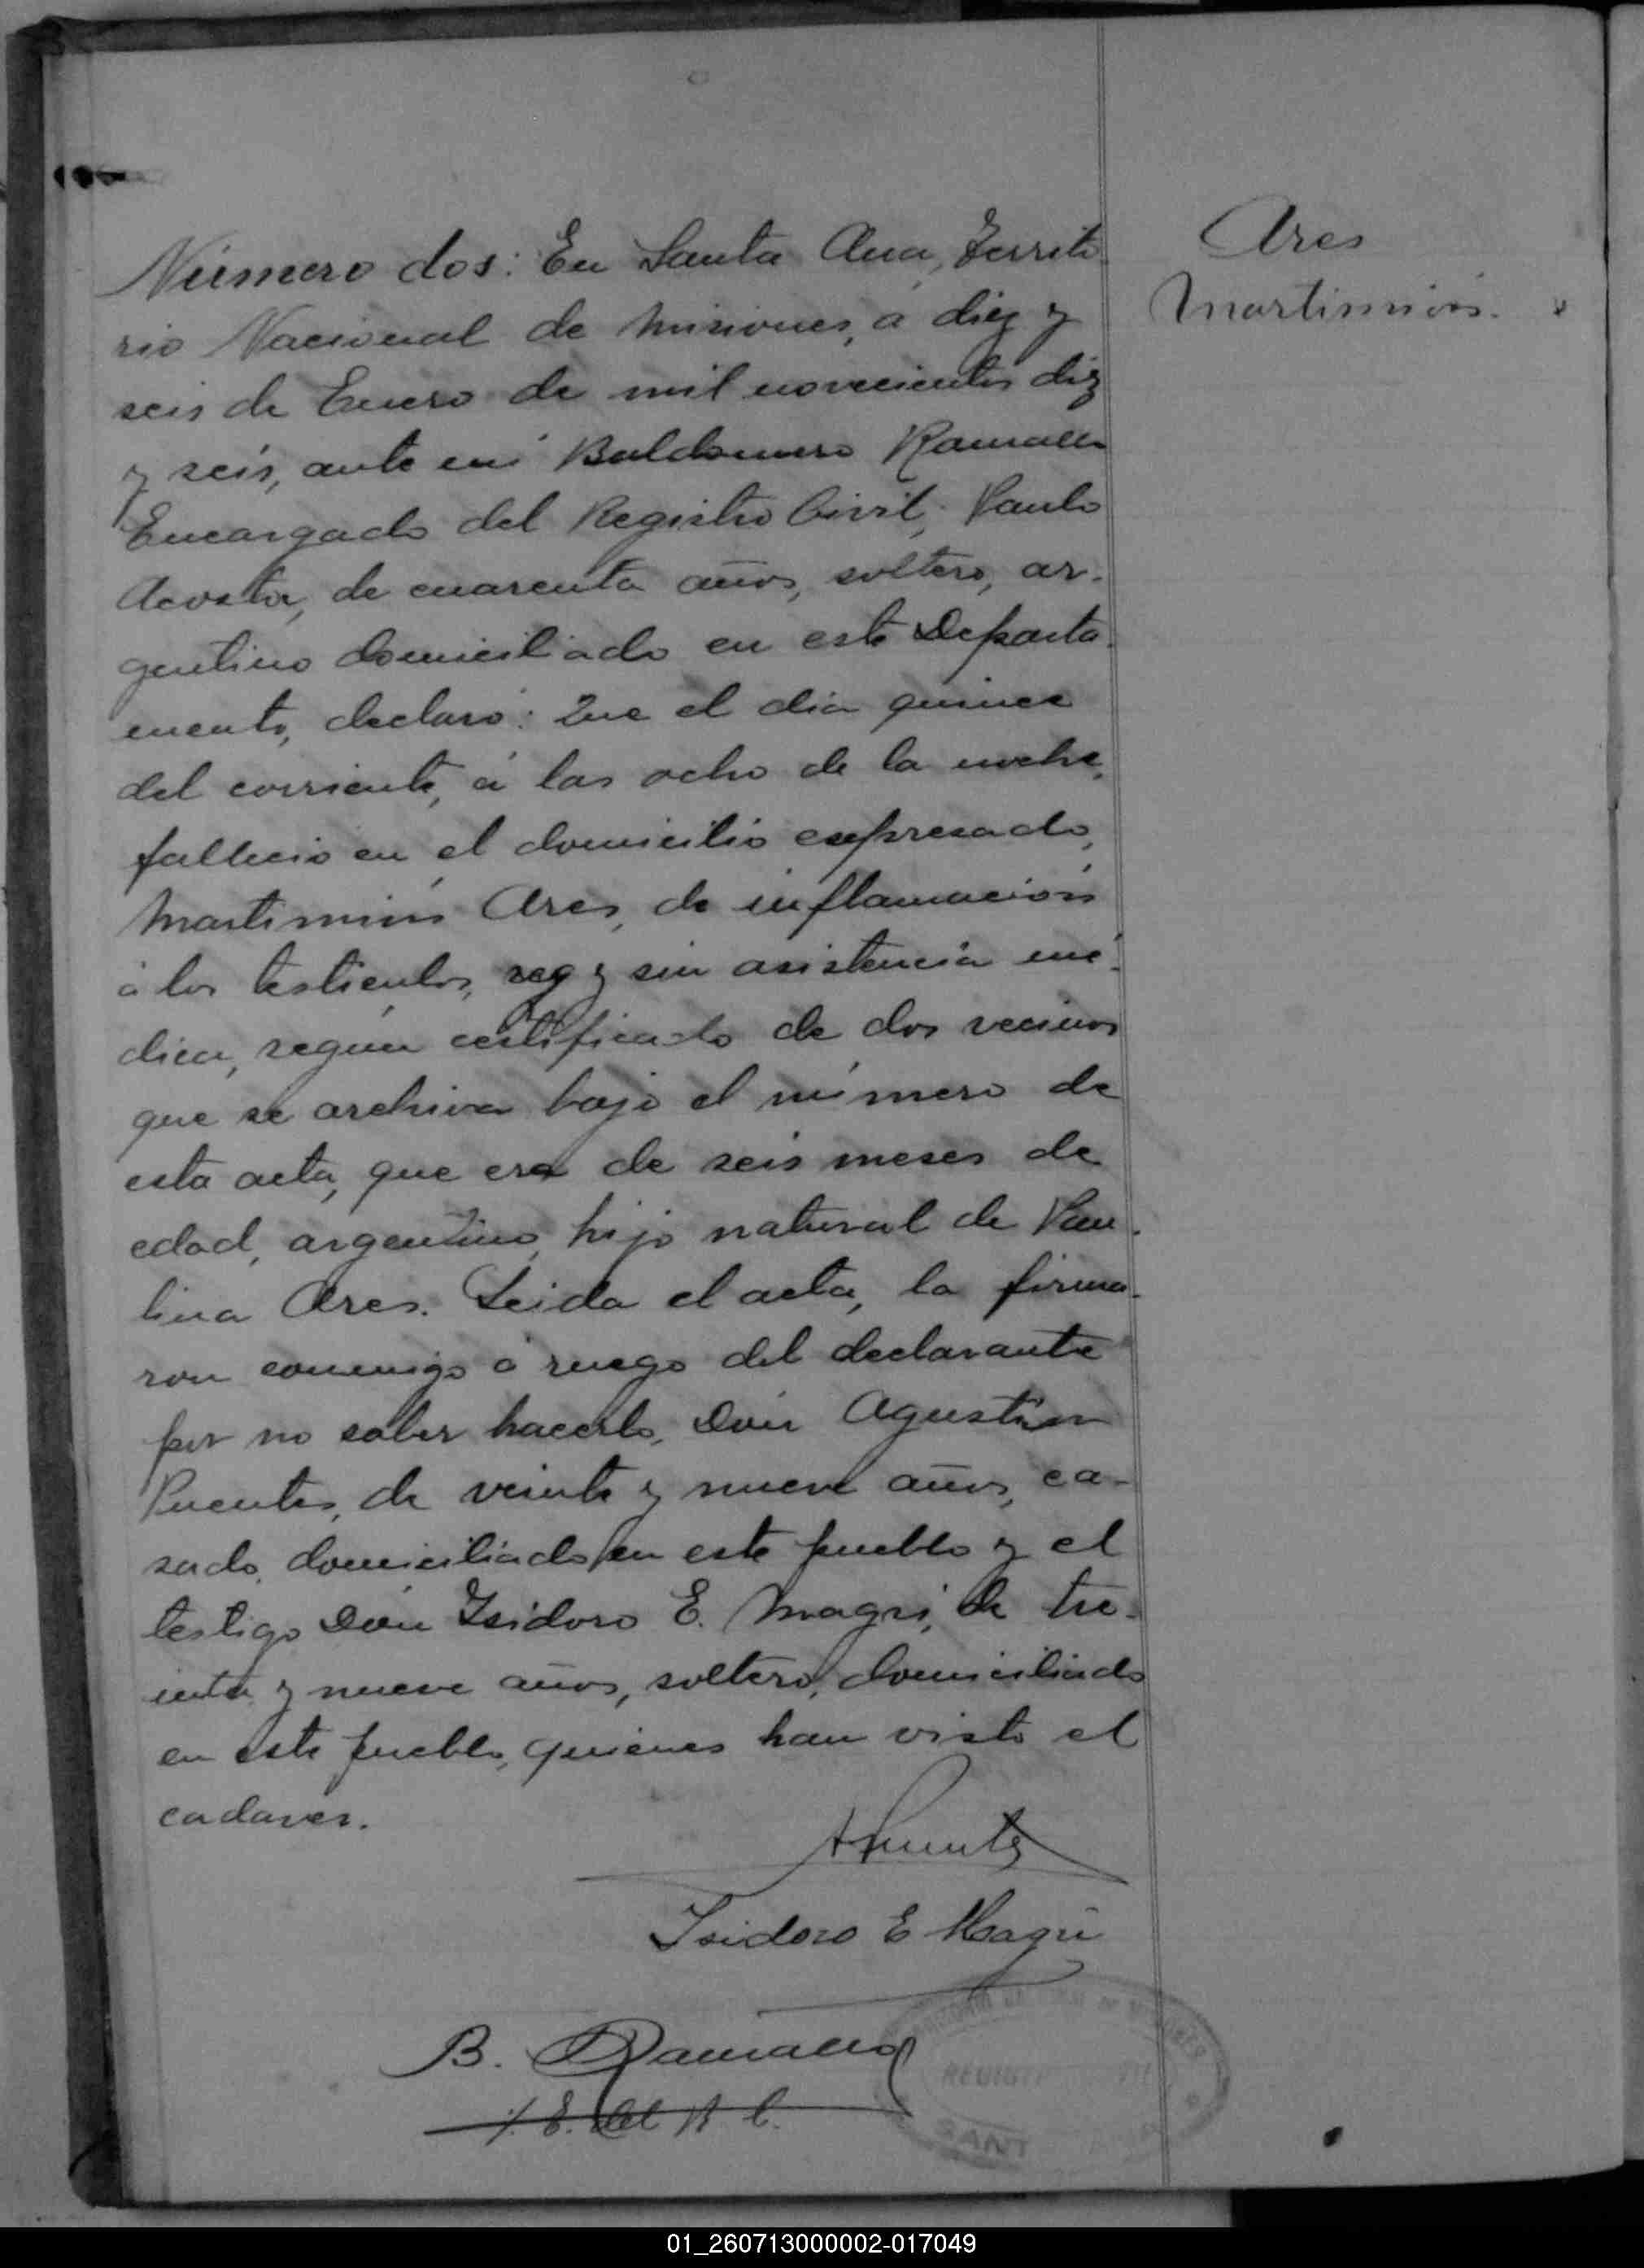 Ares
Martiniois.
Número dos: En Santa Ana, Territo-
rio Nacional de Misiones, á diez y
seis de Enero de mil novecientos diez
y seis, ante mi Baldomero Ramallo
Encargado del Registro Civil, Paulo
Acosta, de cuarenta años, soltero, ar-
gentino domiciliado en este Departa-
mento, declaró: Que el dia quince
del corriente, á las ocho de la noche,
falleció en el domicilio expresado,
Ares, de inflamación
á los testiculos, seg y sin asistencia mé-
dica, según certificado de dos vecinos
que se archiva bajo el número de
esta acta, que era de seis meses de
edad, argentino, hijo natural de Pau-
lina Ares. Leida el acta, la firma-
ron conmigo á ruego del declarante
por no saber hacerlo, Don Agustin
Puentes, de veinte y nueve años, ca-
sado, domiciliado en este pueblo y el
testigo Don Isidoro E. Magri, de tre-
inta y nueve años, soltero, domiciliado
en este pueblo, quienes han visto el
cadaver.
APuentes
Isidoro E Magri
B. Ramallo
E. del R C.
REGISTR
SANT
01_260713000002-017049